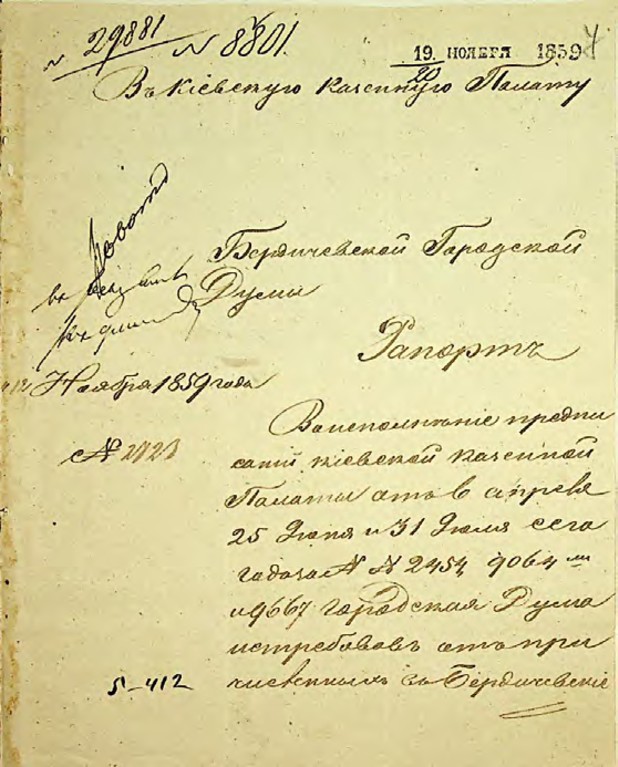 N 29881 N 8801.
19. НОЯБРЯ 1859
20
Въ Кіевскую Казенную Палату
Бердичевской Городской
Думы
Рапортъ
Ноября 1859 года
№ 2723
Во исполненіе предпи
саній Кіевской Казенной
Палаты отъ 6 апреля
25 Іюня и 31 Іюля сего
года за № № 2454, 9064
и 9667 Городская Дума
истребовавъ отъ при
численныхъ къ Бердичевскіе
5-412